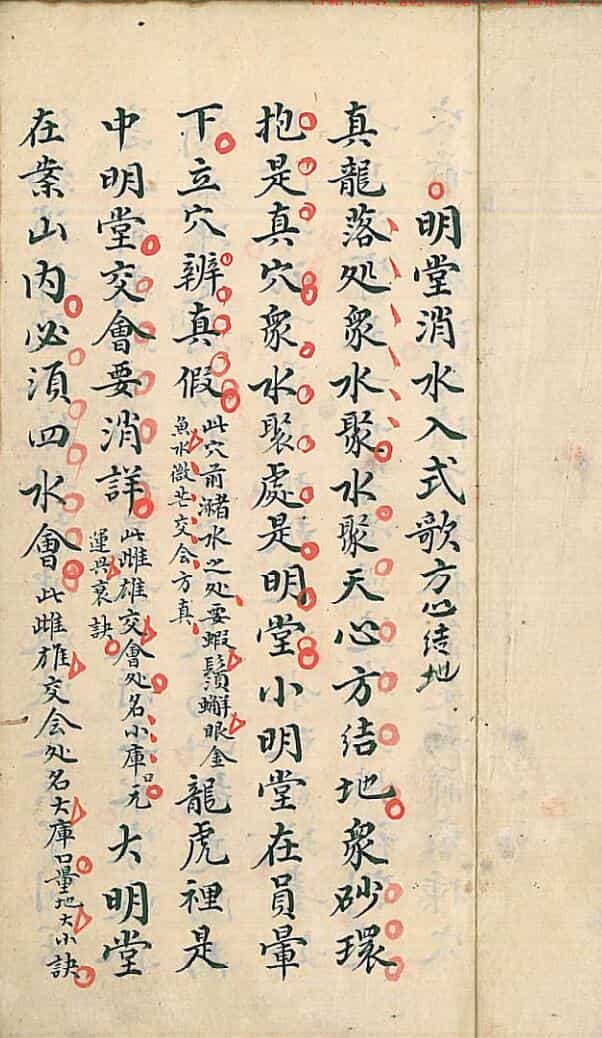 明堂消水入式歌方心结地
真龍落处衆水聚水聚天心方结地衆砂環
抱是真穴衆水聚處是明堂小明堂在員暈
下立穴辨真假此穴前瀦水之处要蝦鬚蠏眼金
魚水微茫交会方真龍虎裡是
中明堂交會要消詳此雌雄交會处名小庫口元
運興衰訣大明堂
在案山内必須四水會此雌雄交会处名大庫口量地大小訣